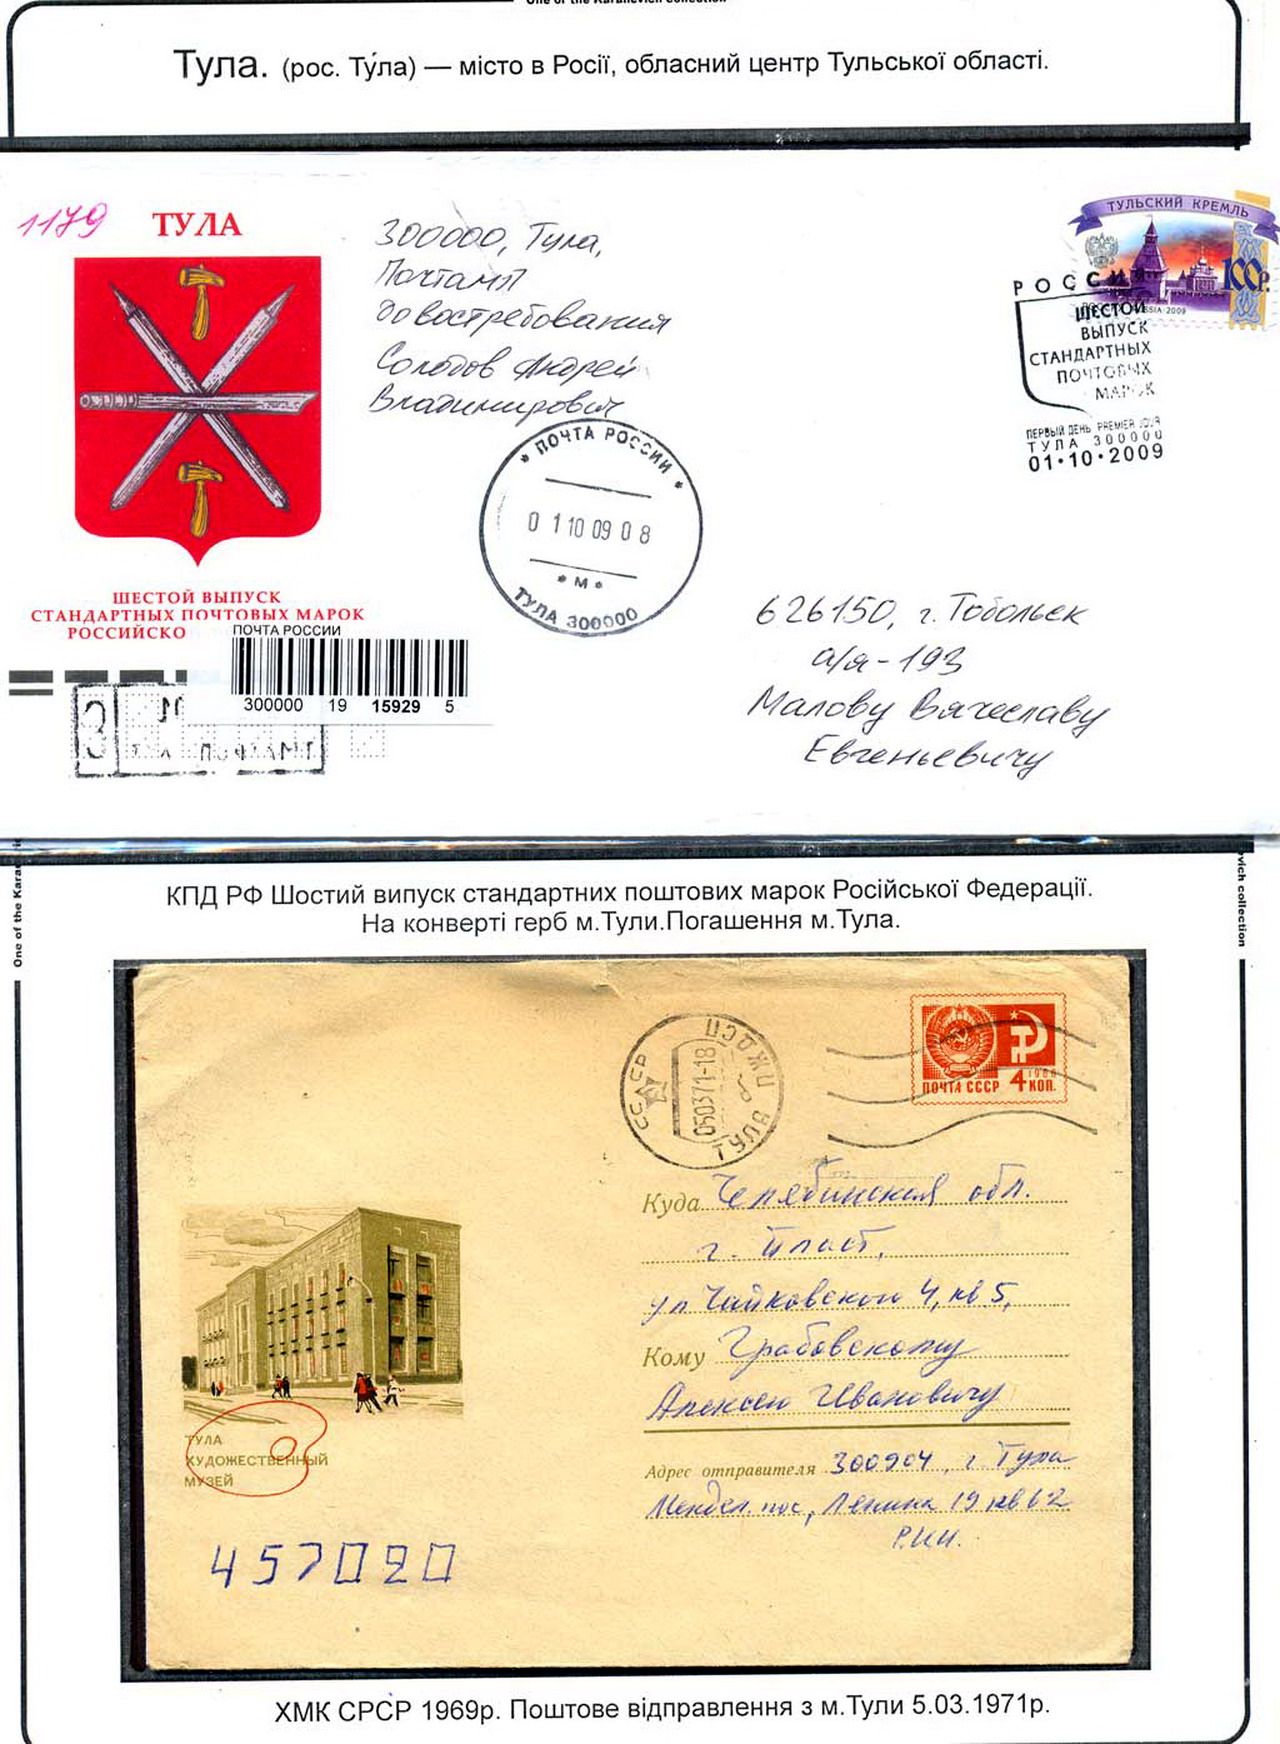 One of the Karanevich collection
Тула. (рос. Ту́ла) — місто в Росії, обласний центр Тульської області.
1179
ТУЛА
300000, Тула,
Почтамп
Довостребования
Солодов Андрей
Владимирович
ТУЛЬСКИЙ КРЕМЛЬ
100 Р.
РОССИЯ
ШЕСТОЙ
ВЫПУСК
СТАНДАРТНЫХ
ПОЧТОВЫХ
МАРОК
ПЕРВЫЙ ДЕНЬ PREMIER JOUR
ТУЛА 300000
01·10·2009
* ПОЧТА РОССИИ *
01 10 09 08
* М *
ТУЛА 300000
ШЕСТОЙ ВЫПУСК
СТАНДАРТНЫХ ПОЧТОВЫХ МАРОК
РОССИЙСКО
ПОЧТА РОССИИ
300000 19 15929 5
З
ПОЧТАМТ
626150, г. Тобольск
а/я-193
Малову Вячеславу
Евгеньевичу
One of the Kara
vich collection
КПД РФ Шостий випуск стандартних поштових марок Російської Федерації.
На конверті герб м.Тули.Погашення м.Тула.
СССР
050371-18
ТУЛА ПЖДСП
ПОЧТА СССР 4 КОП.
1966
Куда Челябинская обл.
г. Пласт,
ул Чайковского 4, кв 5,
Кому Грабовскому
Алексею Ивановичу
Адрес отправителя 300904, г. Тула
Мендел. пос, Ленина 19 кв 62
Р.И.И.
ТУЛА
ХУДОЖЕСТВЕННЫЙ
МУЗЕЙ
457020
ХМК СРСР 1969р. Поштове відправлення з м.Тули 5.03.1971р.